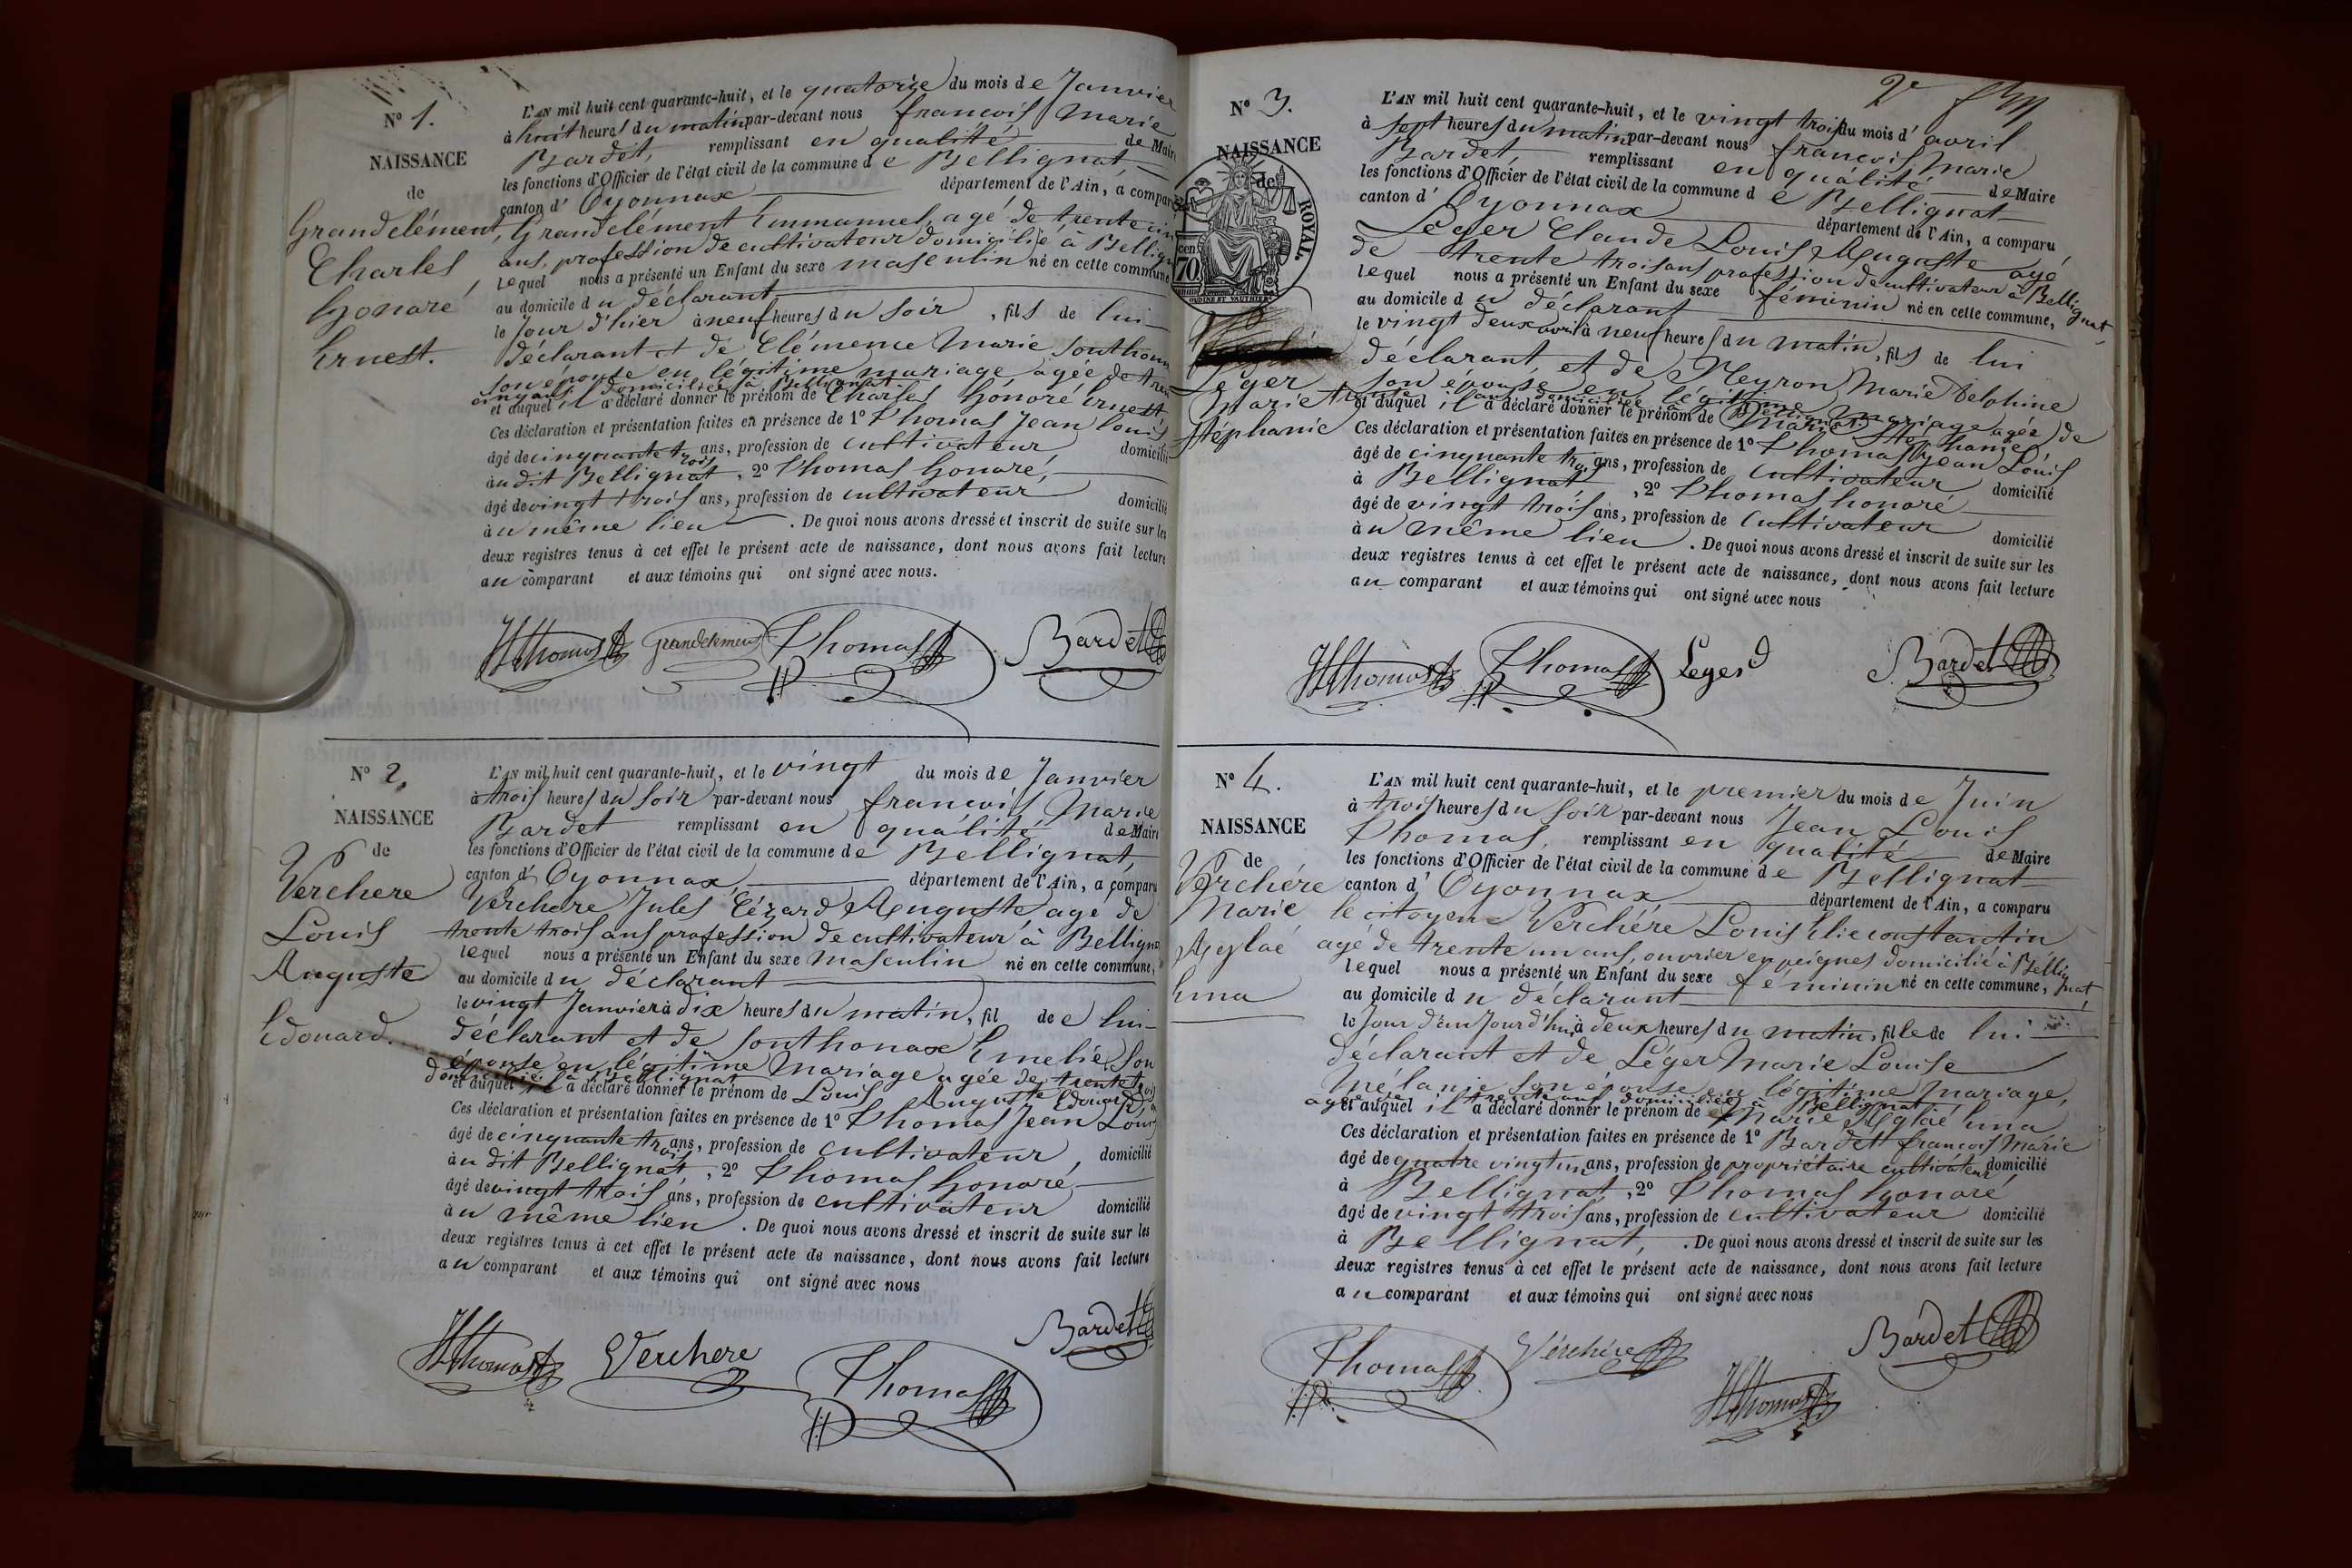 N° 1.
NAISSANCE
de
Grandclément,
Charles,
honoré
Ernest.
L'AN mil huit cent quarante-huit, et le quatorze du mois de Janvier
à huit heures du matin par-devant nous françois Marie
Bardet, remplissant en qualité de Maire
les fonctions d'Officier de l'état civil de la commune de Bellignat
canton d'Oyonnax département de l'Ain, a comparu
Grandclément Emmanuel, agé de trente cinq
ans, profession de cultivateur domicilié à Bellignat
lequel nous a présenté un Enfant du sexe masculin né en cette commune
au domicile du déclarant
le Jour d'hier à neuf heures du soir, fils de lui
déclarant et de Clémence Marie Sonthonax
son épouse en légitime mariage agée de trente
cinq ans domiciliée à Bellignat
et auquel il a déclaré donner le prénom de Charles honoré Ernest
Ces déclaration et présentation faites en présence de 1° Thomas Jean Louis
âgé de cinquante trois ans, profession de cultivateur domicilié
au dit Bellignat, 2° Thomas honoré,
âgé de vingt trois ans, profession de cultivateur domicilié
au même lieu. De quoi nous avons dressé et inscrit de suite sur les
deux registres tenus à cet effet le présent acte de naissance, dont nous avons fait lecture
au comparant et aux témoins qui ont signé avec nous.
hthomas grandclement Thomas Bardet
N° 2.
NAISSANCE
de
Verchere
Louis
Auguste
Edouard.
L'AN mil huit cent quarante-huit, et le vingt du mois de Janvier
à trois heures du soir par-devant nous françois Marie
Bardet remplissant en qualité de Maire
les fonctions d'Officier de l'état civil de la commune de Bellignat,
canton d'Oyonnax, département de l'Ain, a comparu
Verchere Jules Cézard Auguste agé de
trente trois ans profession de cultivateur à Bellignat
lequel nous a présenté un Enfant du sexe masculin né en cette commune,
au domicile du déclarant
le vingt Janvier à dix heures du matin, fil de lui
déclarant et de Sonthonax Emelie Son
épouse en légitime Mariage agée de trente trois
domiciliée à Bellignat
et auquel il a déclaré donner le prénom de Louis Auguste Edouard
Ces déclaration et présentation faites en présence de 1° Thomas Jean Louis
âgé de cinquante trois ans, profession de cultivateur, domicilié
au dit Bellignat, 2° Thomas honoré,
âgé de vingt trois ans, profession de cultivateur domicilié
au même lieu. De quoi nous avons dressé et inscrit de suite sur les
deux registres tenus à cet effet le présent acte de naissance, dont nous avons fait lecture
au comparant et aux témoins qui ont signé avec nous
hthomas Verchere Thomas Bardet
2e
N° 3.
NAISSANCE
de
ROYAL.
cen
70
Léger
Marie
Stéphanie
L'AN mil huit cent quarante-huit, et le vingt trois du mois d'avril
à sept heures du matin par-devant nous françois Marie
Bardet, remplissant en qualité de Maire
les fonctions d'Officier de l'état civil de la commune de Bellignat
canton d'Oyonnax département de l'Ain, a comparu
Léger Claude Louis Auguste agé
de trente trois ans profession de cultivateur à Bellignat
lequel nous a présenté un Enfant du sexe féminin né en cette commune,
au domicile du déclarant
le vingt deux avril à neuf heures du matin, fils de lui
déclarant, et de Neyron Marie Delphine
Son épouse en légitime mariage agée de
trente ans domiciliée à Bellignat
et auquel il a déclaré donner le prénom de Marie Stephanie
Ces déclaration et présentation faites en présence de 1° Thomas Jean Louis
âgé de cinquante trois ans, profession de cultivateur domicilié
à Bellignat, 2° Thomas honoré
âgé de vingt trois ans, profession de Cultivateur domicilié
au même lieu. De quoi nous avons dressé et inscrit de suite sur les
deux registres tenus à cet effet le présent acte de naissance, dont nous avons fait lecture
au comparant et aux témoins qui ont signé avec nous
hthomas Thomas Leger Bardet
N° 4.
NAISSANCE
de
Verchére
Marie
Aglaé
Ema
L'AN mil huit cent quarante-huit, et le premier du mois de Juin
à trois heures du soir par-devant nous Jean Louis
Thomas, remplissant en qualité de Maire
les fonctions d'Officier de l'état civil de la commune de Bellignat
canton d'Oyonnax département de l'Ain, a comparu
le citoyen Verchére Louis Elie constantin
agé de trente un ans, ouvrier en peignes domicilié à Bellignat,
lequel nous a présenté un Enfant du sexe féminin né en cette commune,
au domicile du déclarant
le Jour d'aujourd'hui à deux heures du matin, fille de lui
déclarant et de Léger Marie Louise
Mélanie son épouse en légitime mariage,
agée de trente ans domiciliée à Bellignat
et auquel il a déclaré donner le prénom de Marie Aglaé Ema
Ces déclaration et présentation faites en présence de 1° Bardet françois Marie
âgé de quatre vingt un ans, profession de propriétaire cultivateur domicilié
à Bellignat, 2° Thomas honoré
âgé de vingt trois ans, profession de cultivateur domicilié
à Bellignat, . De quoi nous avons dressé et inscrit de suite sur les
deux registres tenus à cet effet le présent acte de naissance, dont nous avons fait lecture
au comparant et aux témoins qui ont signé avec nous
Thomas Vérchére hthomas Bardet